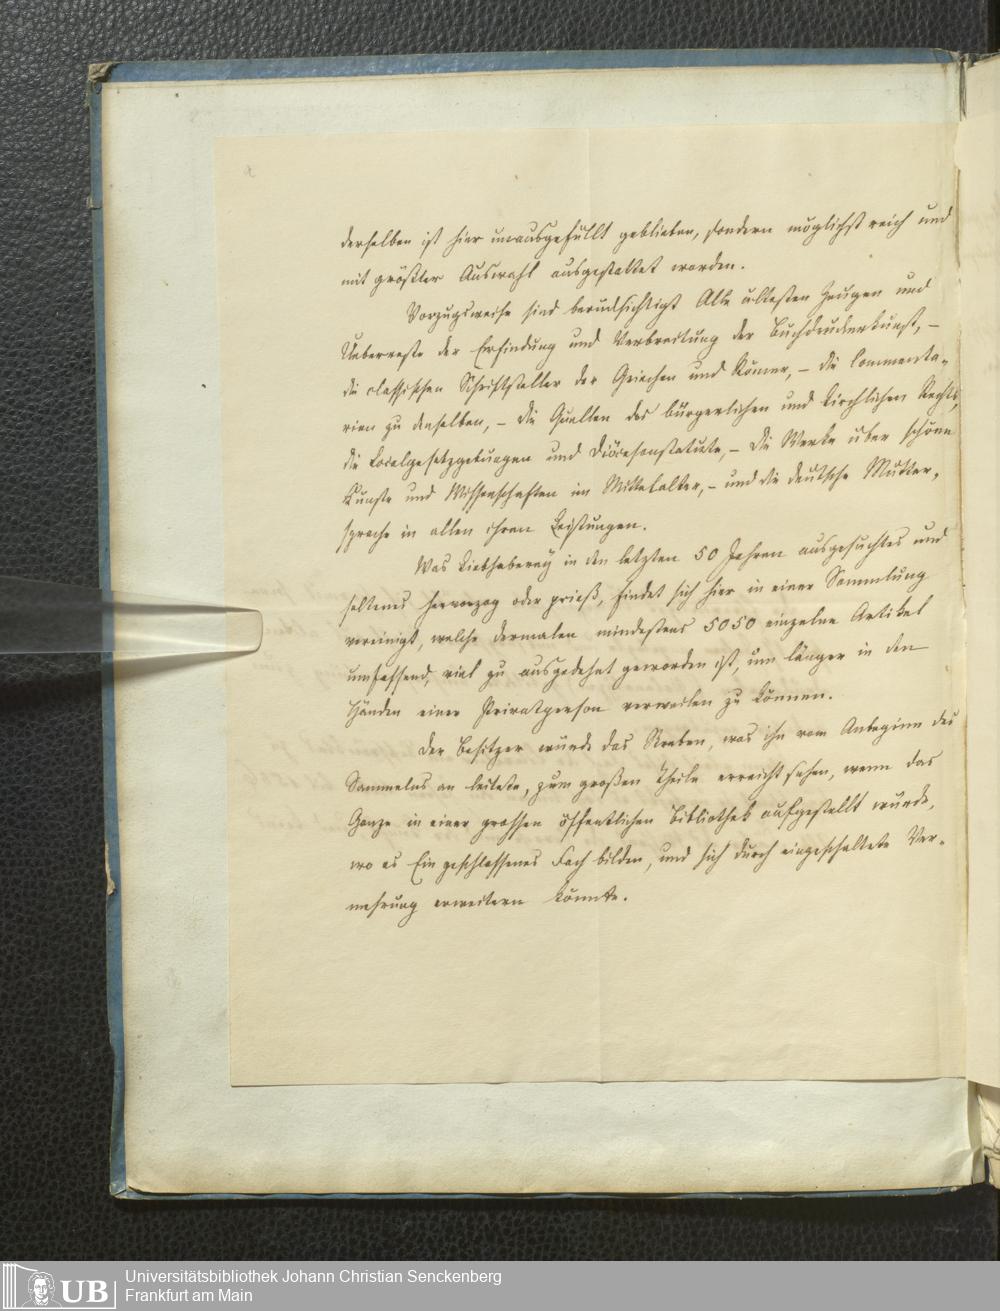 derselben ist hier unausgefüllt geblieben, sondern möglichst reich und
mit größter Auswahl ausgestattet worden.
Vorzugsweise sind berücksichtigt Alle ältesten Zeugen und
Ueberreste der Erfindung und Verbreitung der Buchdruckerkunst, –
die classischen Schriftsteller der Griechen und Römer, – die Commenta-
rien zu denselben, – die Quellen des bürgerlichen und kirchlichen Rechts,
die Localgesetzgebungen und Diöcesanstatute, – die Werke über schöne
Künste und Wissenschaften im Mittelalter, – und die deutsche Mutter-
sprache in allen ihren Leistungen.
Was Liebhaberey in den letzten 50 Jahren ausgesuchtes und
seltenes hervorzog oder prieß, findet sich hier in einer Sammlung
vereinigt, welche dermalen mindestens 5050 einzelne Artikel
umfassend, viel zu ausgedehnt geworden ist, um länger in den
Händen einer Privatperson verweilen zu können.
Der Besitzer würde das Streben, was ihn vom Anbeginn des
Sammelns an leitete, zum großen Theile erreicht sehen, wenn das
Ganze in einer grossen öffentlichen Bibliothek aufgestellt würde,
wo es Ein geschlossenes Fach bilden, und sich durch eingeschaltete Ver-
mehrung erweitern könnte.
UB
Universitätsbibliothek Johann Christian Senckenberg
Frankfurt am Main